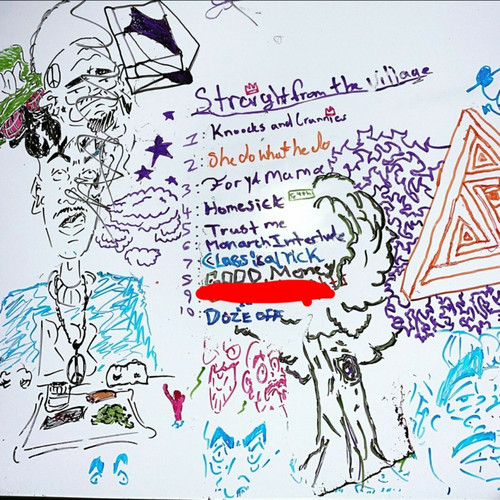 Streight from the Village
1: Knocks and Crannies
2: She do what he do
3: For ya Mama
4: Homesick
5: Trust me
6: Monarch Interlude
7: Classical Trick
8 GOOD Money
9
10: DOZE OFF